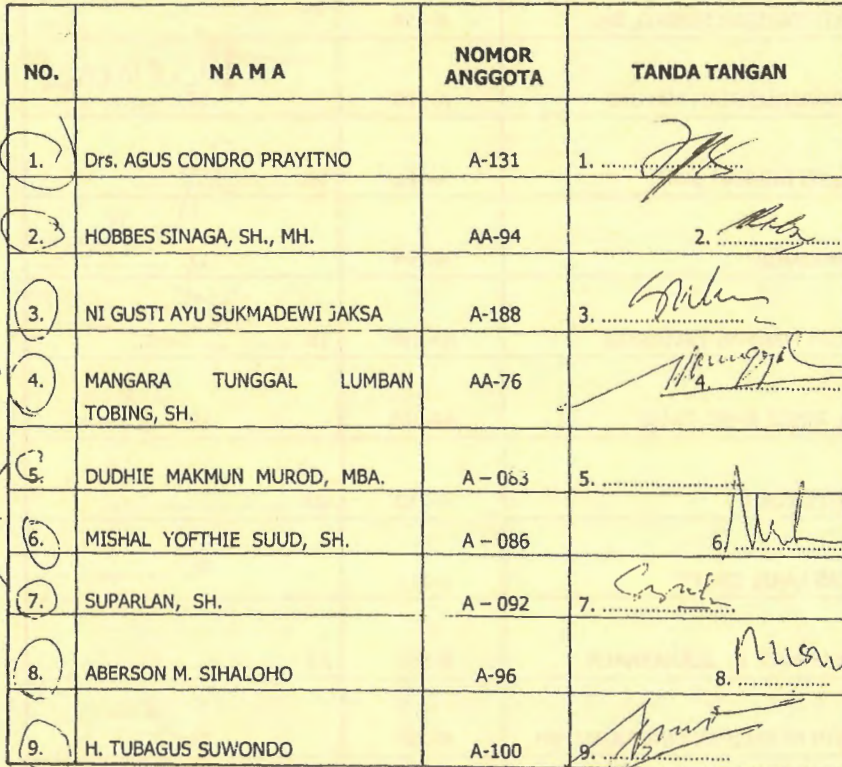 NO. N A M A NOMOR ANGGOTA TANDA TANGAN
1. Drs. AGUS CONDRO PRAYITNO A-131 1. ....................
2. HOBBES SINAGA, SH., MH. AA-94 2. ....................
3. NI GUSTI AYU SUKMADEWI JAKSA A-188 3. ....................
4. MANGARA TUNGGAL LUMBAN AA-76 4. ....................
TOBING, SH.
5. DUDHIE MAKMUN MUROD, MBA. A – 083 5. ....................
6. MISHAL YOFTHIE SUUD, SH. A – 086 6. ....................
7. SUPARLAN, SH. A – 092 7. ....................
8. ABERSON M. SIHALOHO A-96 8. ....................
9. H. TUBAGUS SUWONDO A-100 9. ....................